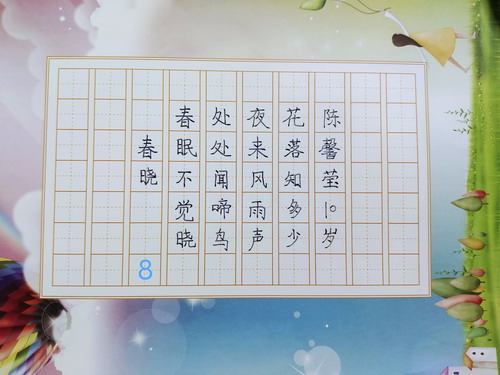 春晓
春眠不觉晓
处处闻啼鸟
夜来风雨声
花落知多少
陈馨莹10岁
8